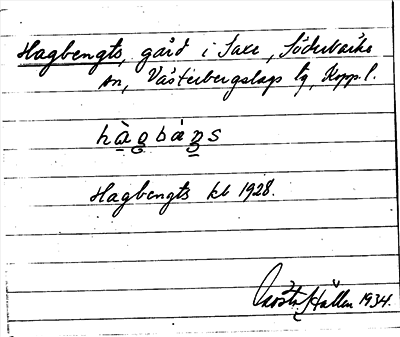 Hagbengts, gård i Saxe, Söderbärke
sn, Västerbergslags tg, Kopp. l.
hàgbàŋs
Hagbengts kb 1928.
Gösta Hallen 1934.